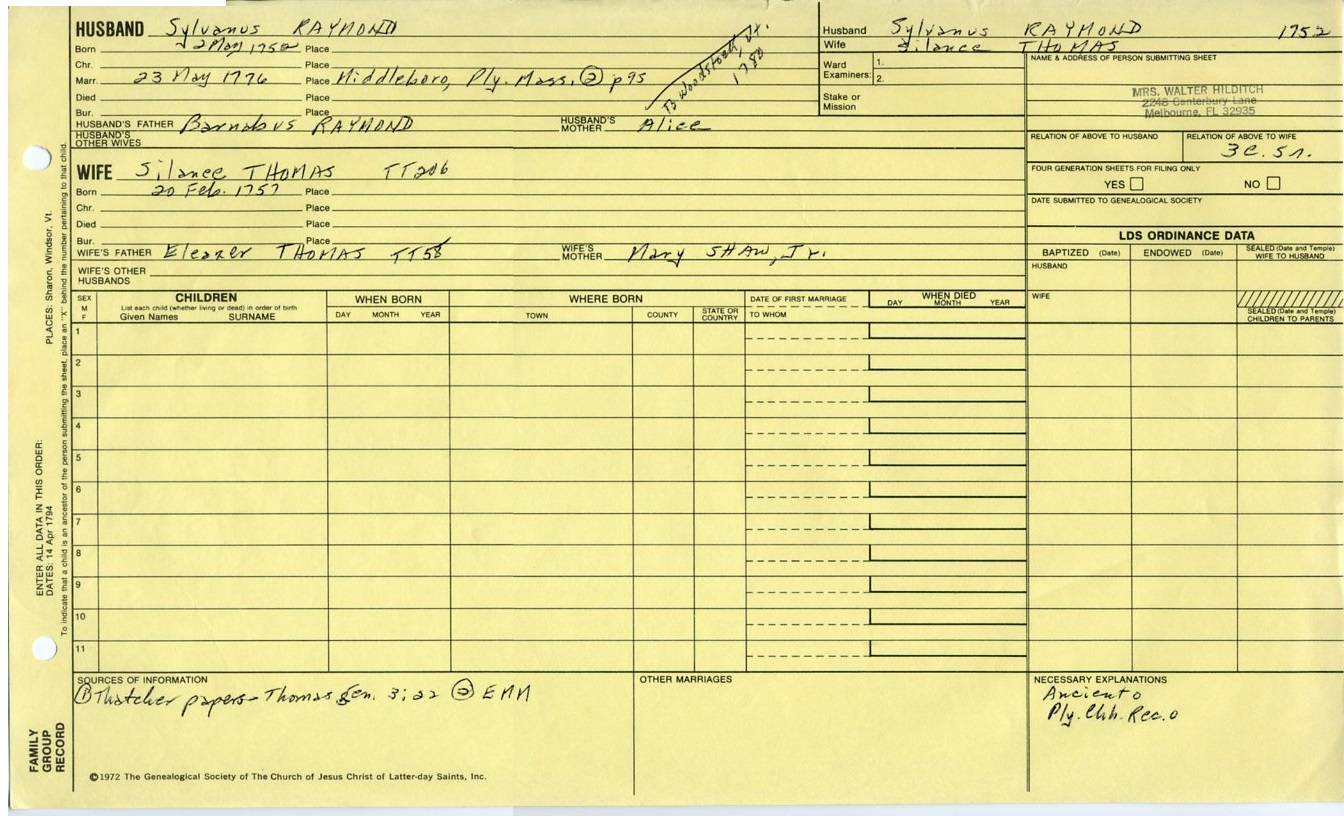 HUSBAND Sylvanus RAYMOND
Born 2 May 1752 Place
Chr. Place
Marr. 23 May 1776 Place Middleboro, Ply. Mass. ② p95
Died Place
Bur. Place
HUSBAND'S FATHER Barnabus RAYMOND HUSBAND'S MOTHER Alice
HUSBAND'S OTHER WIVES
To Woodstock, Vt. 1780
WIFE Silance THOMAS TT206
Born 20 Feb. 1757 Place
Chr. Place
Died Place
Bur. Place
WIFE'S FATHER Eleazer THOMAS TT58 WIFE'S MOTHER Mary SHAW, Jr.
WIFE'S OTHER HUSBANDS
Husband Sylvanus RAYMOND 1752
Wife Silance THOMAS
Ward Examiners: 1.
2.
Stake or Mission
NAME & ADDRESS OF PERSON SUBMITTING SHEET
MRS. WALTER HILDITCH
2248 Canterbury Lane
Melbourne, FL 32935
RELATION OF ABOVE TO HUSBAND RELATION OF ABOVE TO WIFE
3C. 5r.
FOUR GENERATION SHEETS FOR FILING ONLY
YES NO
DATE SUBMITTED TO GENEALOGICAL SOCIETY
LDS ORDINANCE DATA
BAPTIZED (Date) ENDOWED (Date) SEALED (Date and Temple) WIFE TO HUSBAND
HUSBAND
WIFE
SEALED (Date and Temple) CHILDREN TO PARENTS
SEX M F
CHILDREN
List each child (whether living or dead) in order of birth
Given Names SURNAME
WHEN BORN
DAY MONTH YEAR
WHERE BORN
TOWN COUNTY STATE OR COUNTRY
DATE OF FIRST MARRIAGE
TO WHOM
WHEN DIED
DAY MONTH YEAR
1
2
3
4
5
6
7
8
9
10
11
SOURCES OF INFORMATION
① Thatcher papers - Thomas Gen. 3:22 ② EMM
OTHER MARRIAGES
NECESSARY EXPLANATIONS
Ply. Chh. Rec.
©1972 The Genealogical Society of The Church of Jesus Christ of Latter-day Saints, Inc.
PLACES: Sharon, Windsor, Vt.
To indicate that a child is an ancestor of the person submitting the sheet, place an "X" behind the number pertaining to that child.
ENTER ALL DATA IN THIS ORDER:
DATES: 14 Apr 1794
FAMILY GROUP RECORD